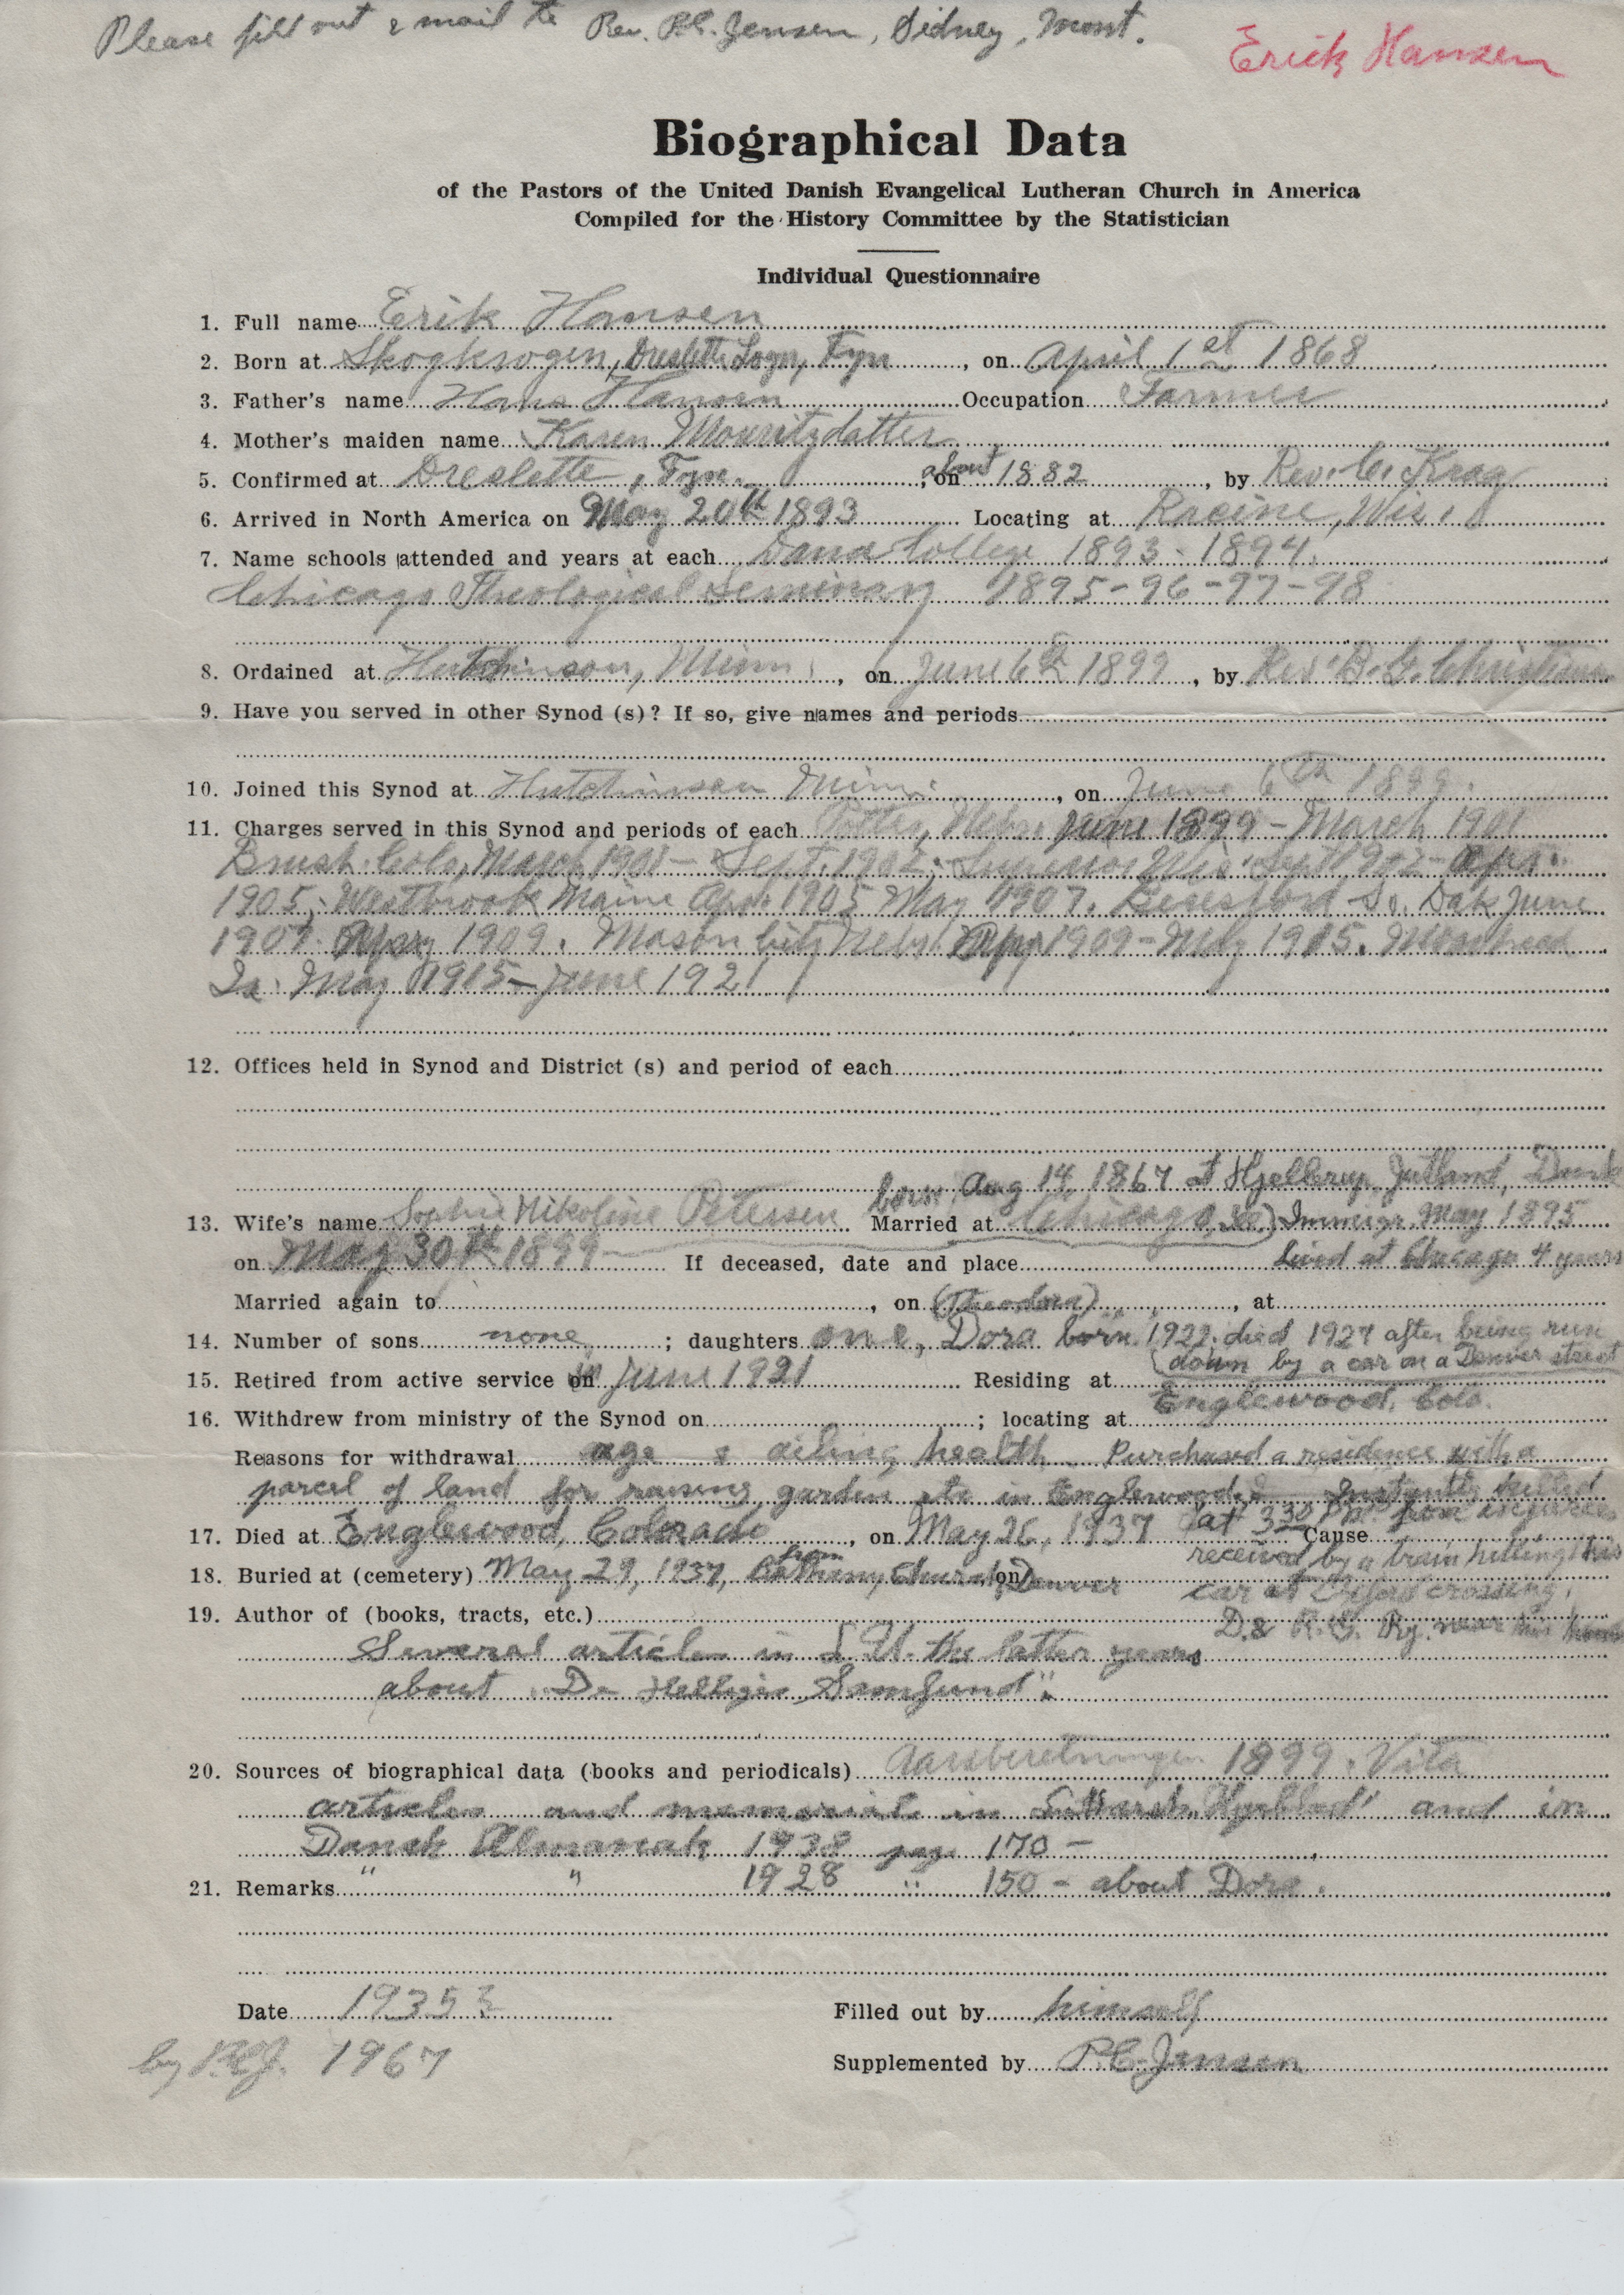 Please fill out & mail to Rev. P.C. Jensen, Sidney, Mont.
Erick Hansen
Biographical Data
of the Pastors of the United Danish Evangelical Lutheran Church in America
Compiled for the History Committee by the Statistician
Individual Questionnaire
1. Full name Erik Hansen
2. Born at Skogkrogen, Dreslette Sogn, Fyn, on April 1st 1868
3. Father's name Hans Hansen Occupation Farmer
4. Mother's maiden name Karen Mouritzdatter
5. Confirmed at Dreslette, Fyn, on about 1882, by Rev. C. Krag
6. Arrived in North America on May 20th 1893 Locating at Racine, Wis.
7. Name schools attended and years at each Dana College 1893-1894.
Chicago Theological Seminary 1895-96-97-98
8. Ordained at Hutchinson, Minn., on June 6th 1899, by Rev. G. Christiansen
9. Have you served in other Synod (s)? If so, give names and periods
10. Joined this Synod at Hutchinson Minn., on June 6th 1899.
11. Charges served in this Synod and periods of each Potter, Nebr. June 1899 - March 1901
Brush Colo, March 1901 - Sept. 1902; Superior Wis. Sept 1902 - Apr.
1905; Westbrook Maine Apr. 1905 May 1907. Beresford So. Dak June
1907. 1909. Mason City Nebr. 1909 - May 1915. Moorhead
Ia. May 1915 - June 1921
12. Offices held in Synod and District (s) and period of each
born Aug 14 1867 at Hjellerup, Jutland, Denk
13. Wife's name Sophie Nikoline Petersen Married at Chicago, Ill.) Immigr. May 1895
on May 30th 1899 If deceased, date and place lived at Chicago 4 years
Married again to, on (Theodora), at
14. Number of sons none; daughters one, Dora born 1922, died 1927 after being run
(down by a car on a Denver street
15. Retired from active service on in June 1921 Residing at
Englewood, Colo.
16. Withdrew from ministry of the Synod on; locating at
Reasons for withdrawal age & ailing health Purchased a residence with a
parcel of land for raising garden etc in Englewood. Instantly killed
17. Died at Englewood, Colorado, on May 26, 1937 at 3:30 P.M. from injuries Cause
received by a train hitting his
18. Buried at (cemetery) May 29, 1937, from Bethany Church, on Denver
car at crossing.
19. Author of (books, tracts, etc.)
D. & R. G. Ry. near his home
Several articles in L. U. the latter years
about "De Helliges Samfund".
20. Sources of biographical data (books and periodicals) Aarsberetningen 1899. Vita
articles and memorial in Luthersk Ugeblad and in
Dansk Almanak 1938 page 170 -
21. Remarks " " 1928 " 150 - about Dora.
Date 1935? Filled out by himself
by P.C.J. 1967 Supplemented by P.C. Jensen